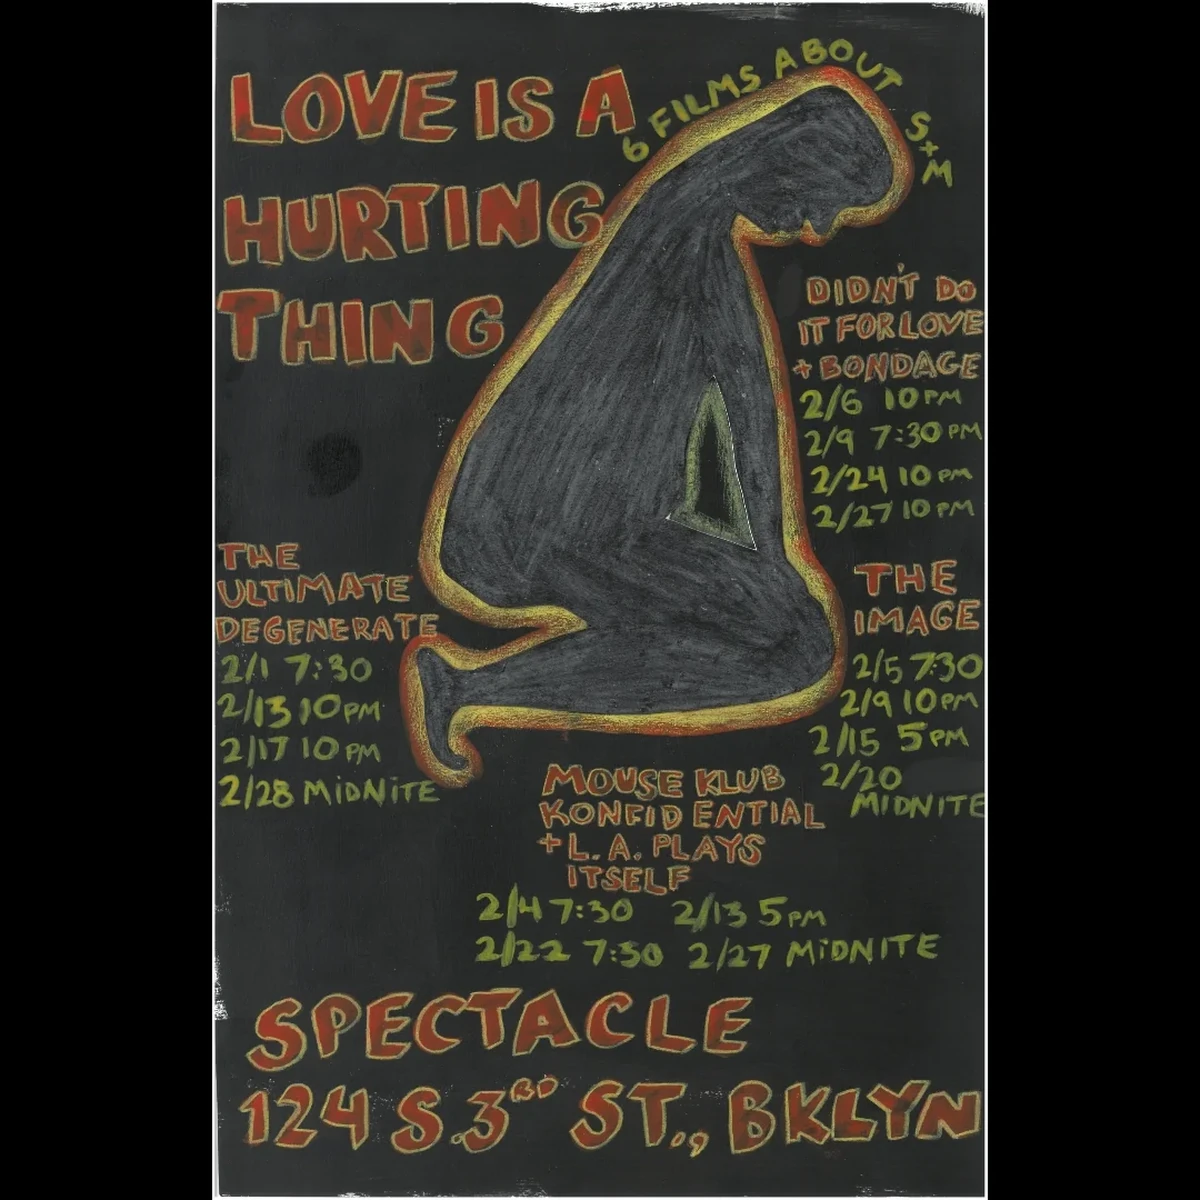 LOVE IS A
HURTING
THING
6 FILMS ABOUT S+M
DIDN'T DO
IT FOR LOVE
+ BONDAGE
2/6 10PM
2/9 7:30PM
2/24 10PM
2/27 10PM
THE
ULTIMATE
DEGENERATE
2/1 7:30
2/13 10PM
2/17 10PM
2/28 MIDNITE
THE
IMAGE
2/5 7:30
2/9 10PM
2/15 5PM
2/20
MIDNITE
MOUSE KLUB
KONFIDENTIAL
+ L.A. PLAYS
ITSELF
2/4 7:30 2/13 5PM
2/22 7:30 2/27 MIDNITE
SPECTACLE
124 S.3RD ST., BKLYN